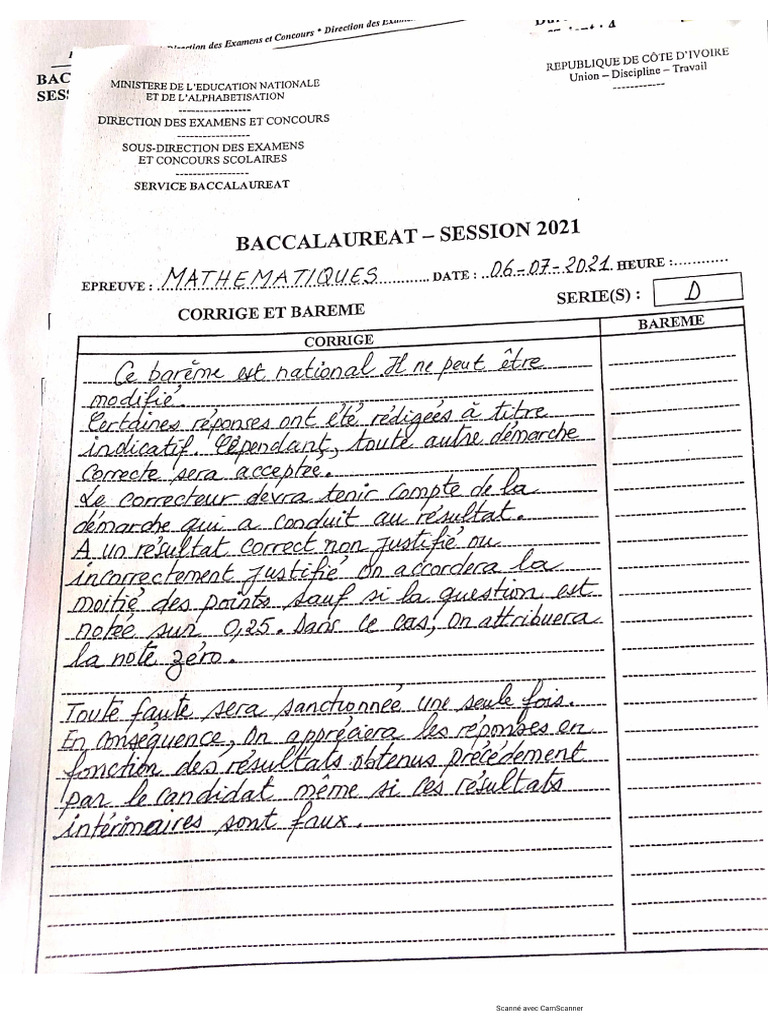 Direction des Examens et Concours * Direction des
BAC
SESS
MINISTERE DE L'EDUCATION NATIONALE
ET DE L'ALPHABETISATION
DIRECTION DES EXAMENS ET CONCOURS
SOUS-DIRECTION DES EXAMENS
ET CONCOURS SCOLAIRES
SERVICE BACCALAUREAT
REPUBLIQUE DE CÔTE D'IVOIRE
Union – Discipline – Travail
BACCALAUREAT – SESSION 2021
EPREUVE : MATHEMATIQUES DATE : 06-07-2021 HEURE :
CORRIGE ET BAREME SERIE(S) : D
CORRIGE BAREME
Ce barême est national. Il ne peut être
modifié.
Certaines réponses ont été rédigées à titre
indicatif. Cependant, toute autre démarche
correcte sera acceptée.
Le correcteur devra tenir compte de la
démarche qui a conduit au résultat.
A un résultat correct non justifié ou
incorrectement justifié on accordera la
moitié des points sauf si la question est
notée sur 0,25. Dans ce cas, on attribuera
la note zéro.
Toute faute sera sanctionnée une seule fois.
En conséquence, on appréciera les réponses en
fonction des résultats obtenus précédement
par le candidat même si ces résultats
intérimaires sont faux.
Scanné avec CamScanner